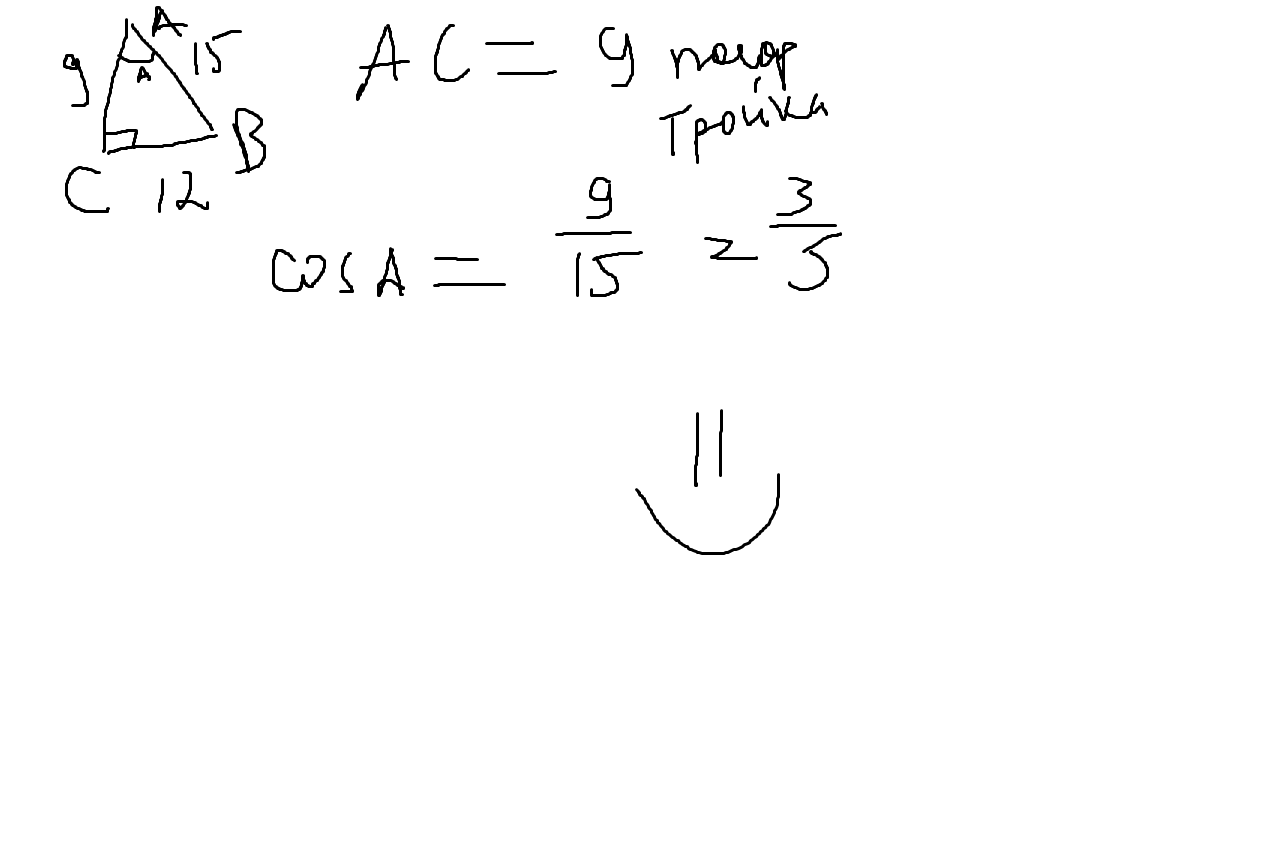 A
9 A 15
C 12 B
AC = 9 пифагор
тройка
cos A = 9/15 = 3/5